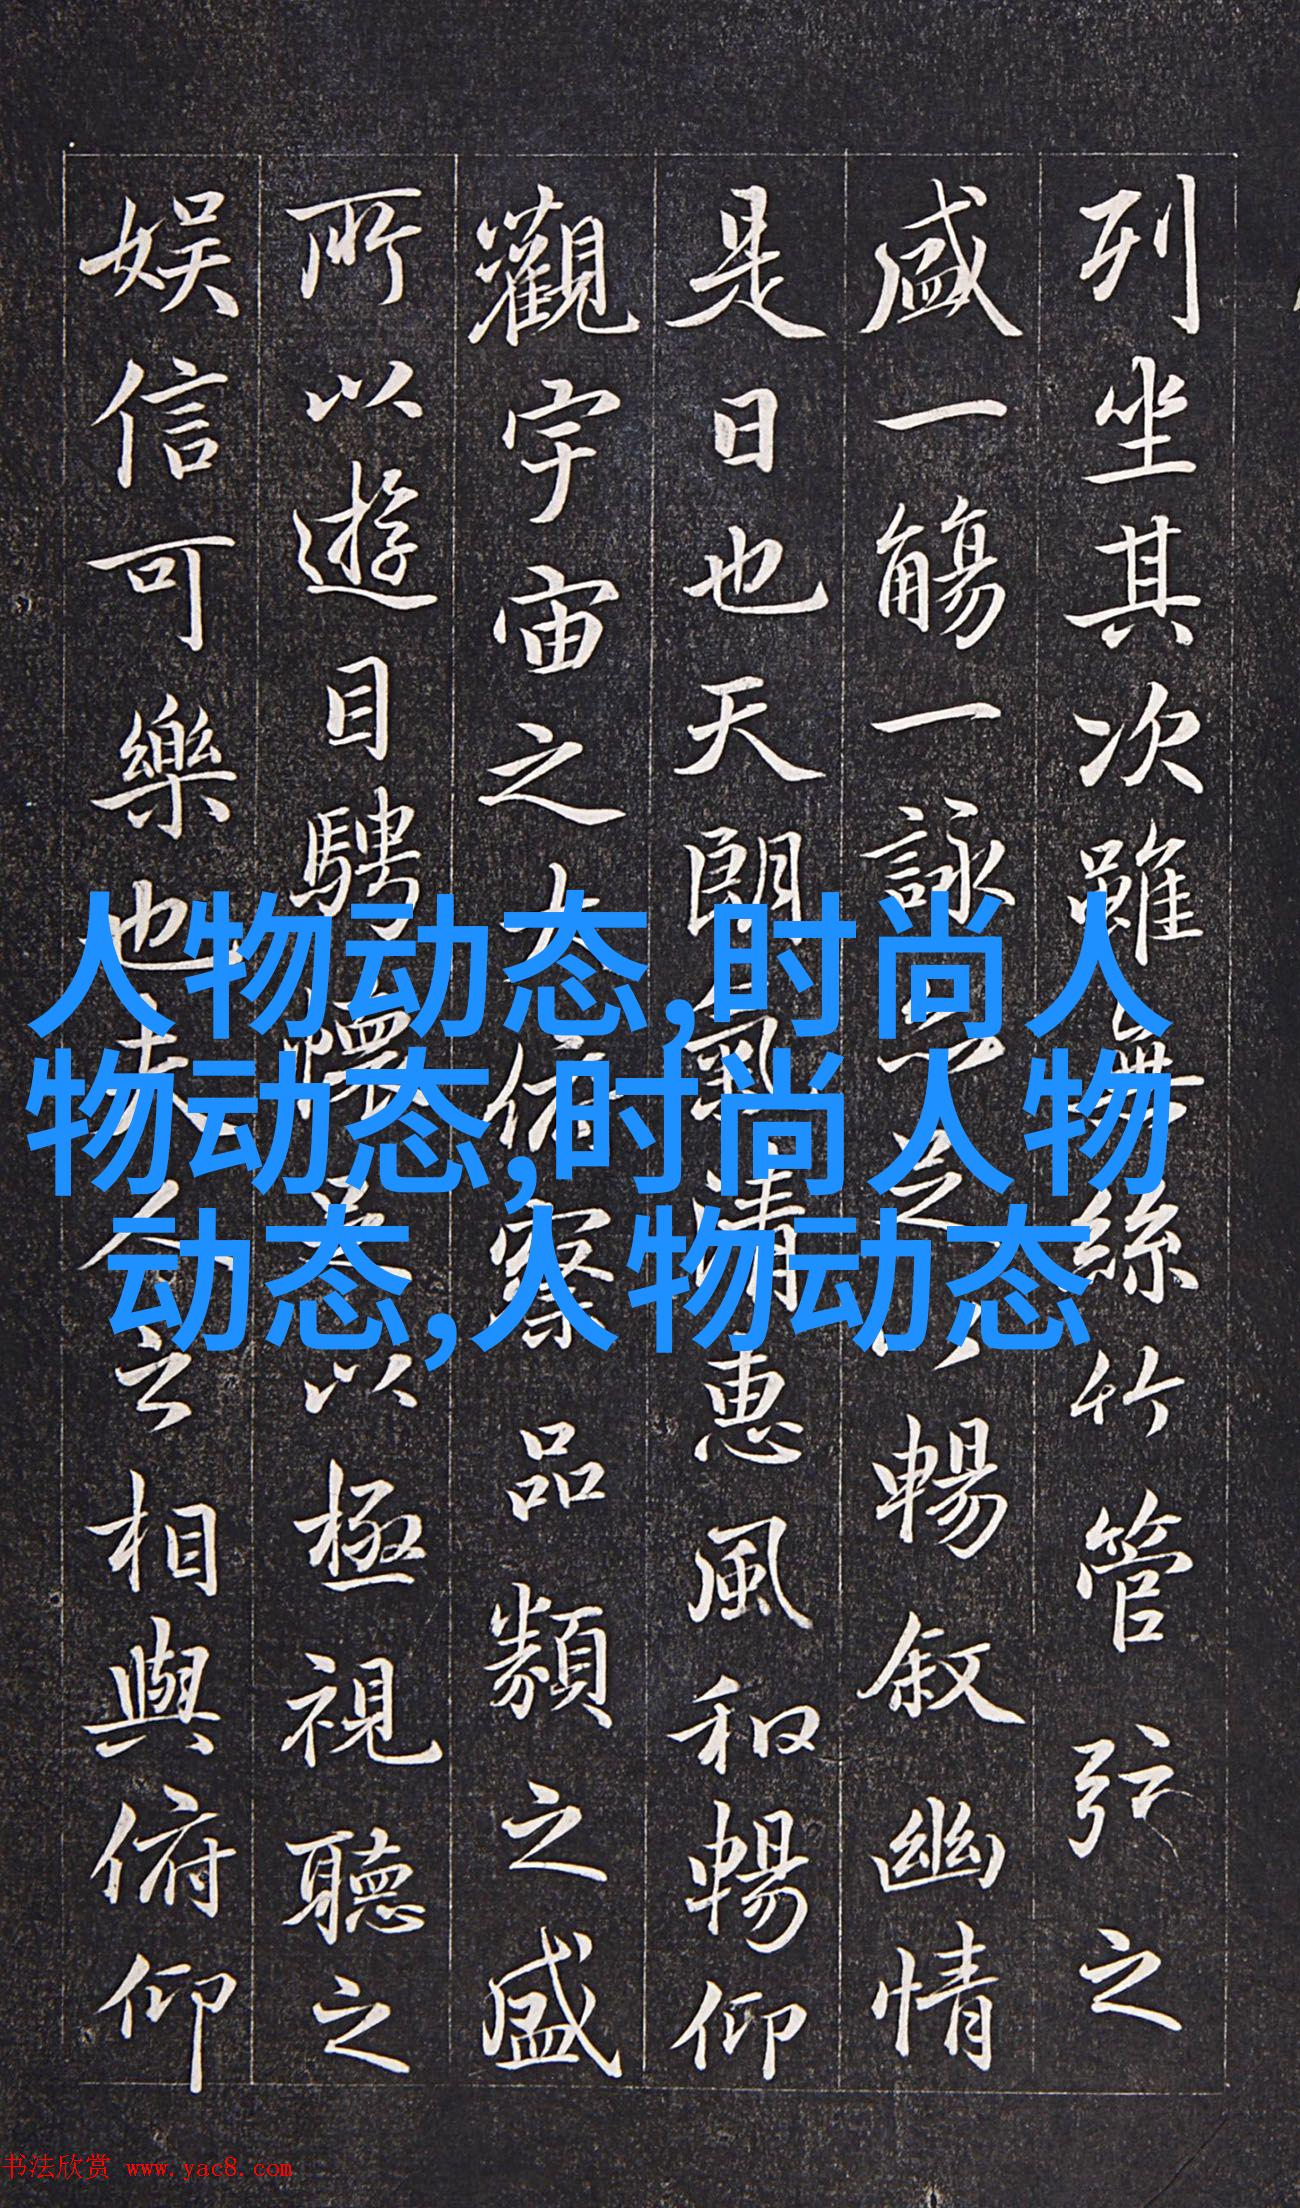 列坐其次雖無絲竹管弦之
盛一觴一詠亦足以暢敘幽情
是日也天朗氣清惠風和暢仰
觀宇宙之大俯察品類之盛
所以遊目騁懷足以極視聽之
娛信可樂也夫人之相與俯仰
人物动态,时尚人
物动态,时尚人物
动态,人物动态
书法欣赏 www.yac8.com